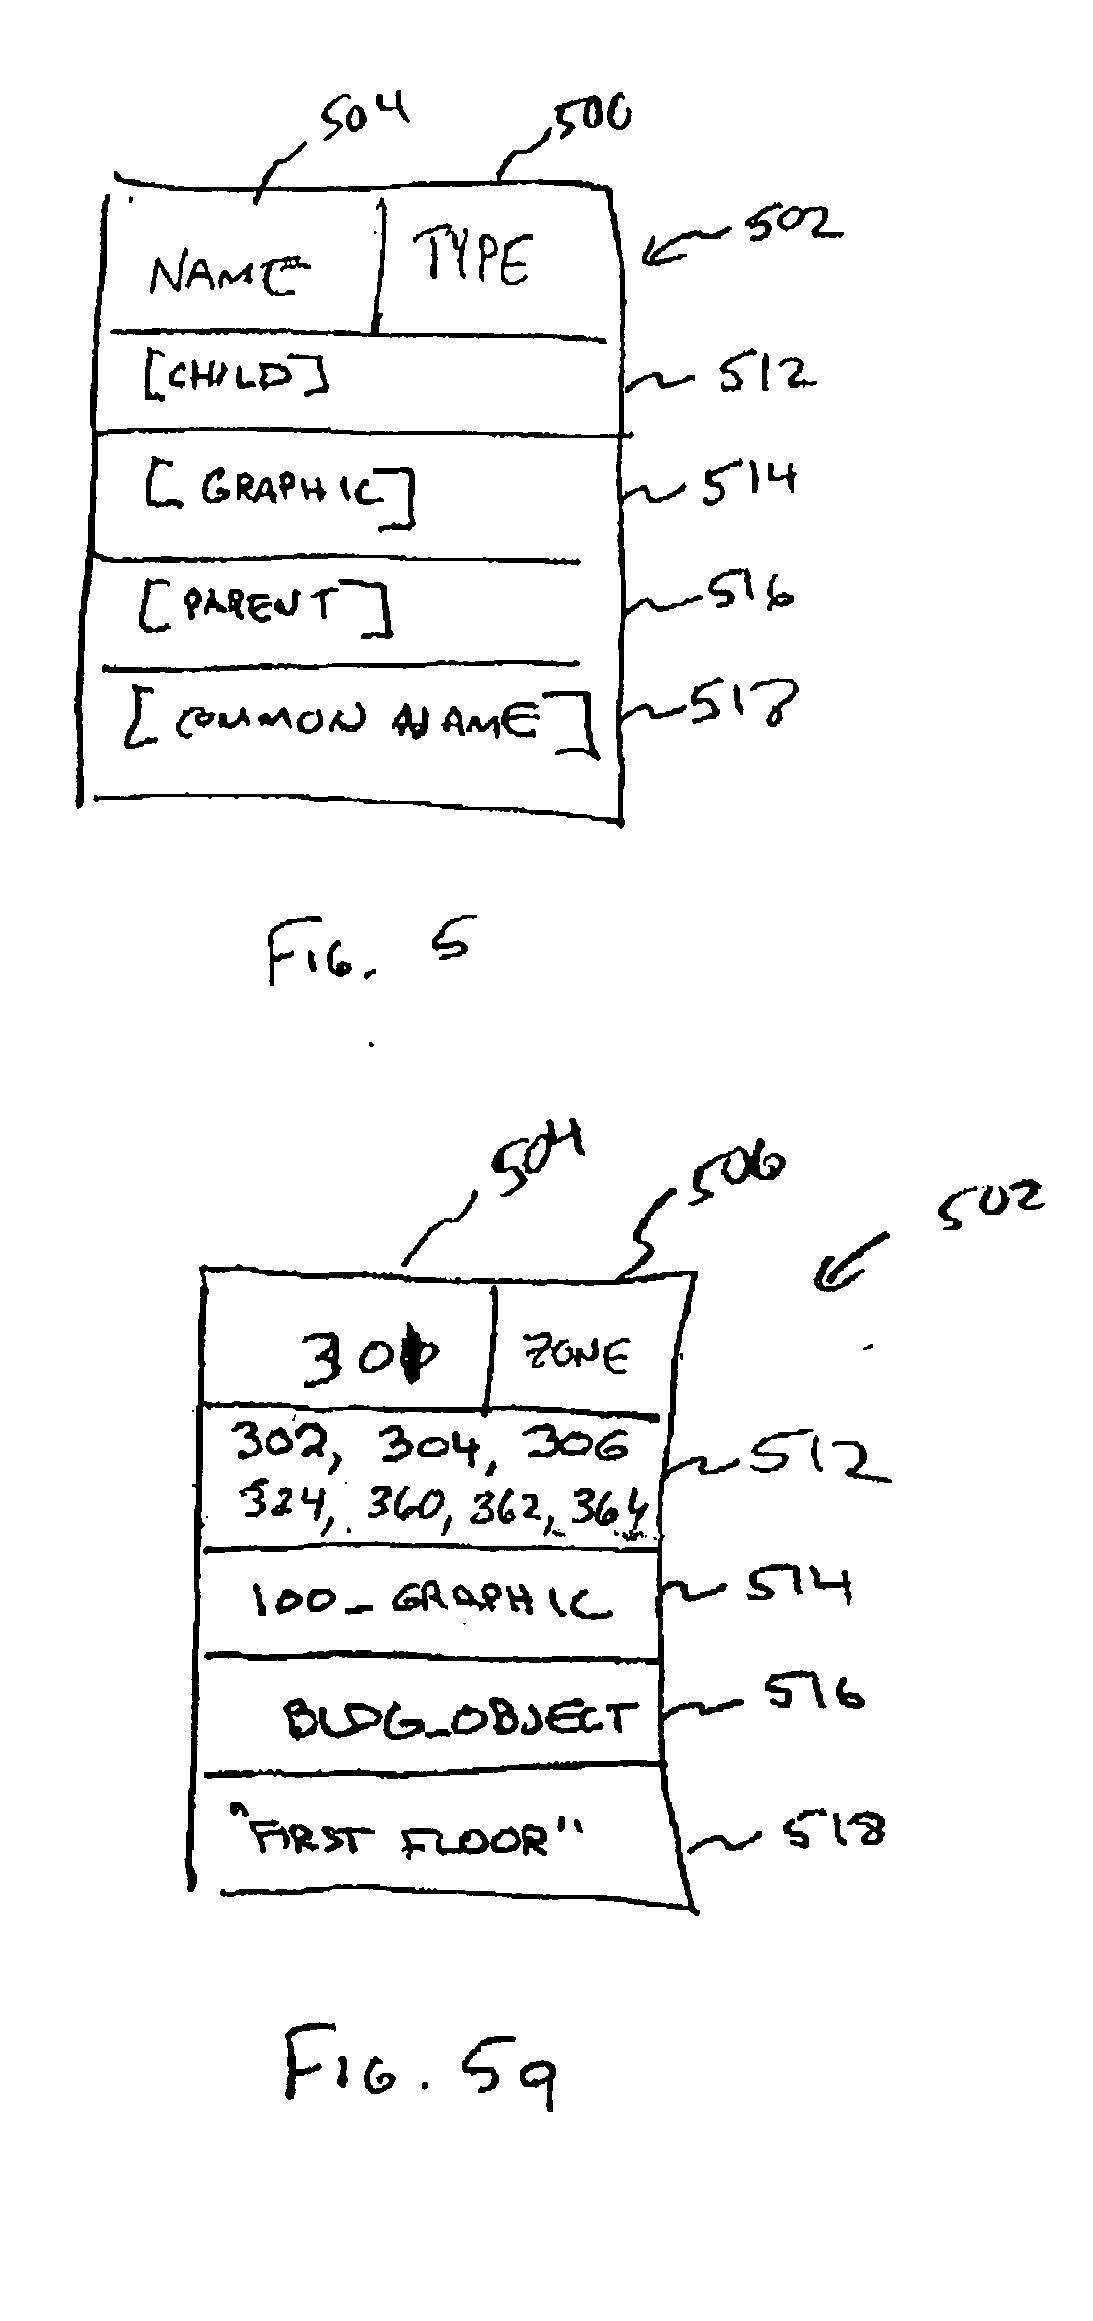 504 500
502
NAME TYPE
[CHILD] 512
[GRAPHIC] 514
[PARENT] 516
[COMMON NAME] 518
FIG. 5
504 506 502
ZONE
302, 304, 306 512
324, 360, 362, 364
100_GRAPHIC 514
BLDG_OBJECT 516
"FIRST FLOOR" 518
FIG. 5a